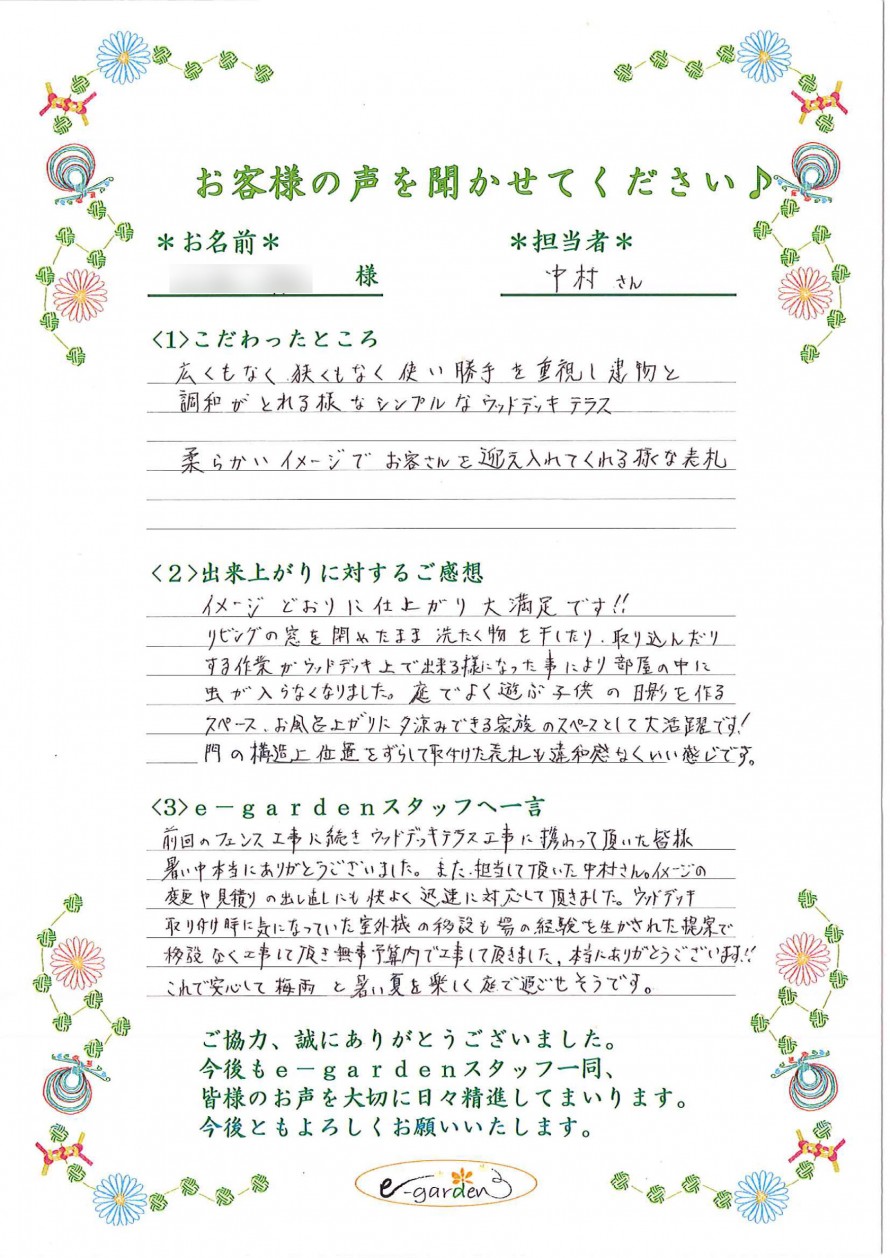 お客様の声を聞かせてください♪
＊お名前＊
＊担当者＊
様
中村 さん
<1>こだわったところ
広くもなく、狭くもなく 使い勝手を重視し建物と
調和がとれる様なシンプルなウッドデッキテラス
柔らかいイメージで お客さんを迎え入れてくれる様な表札
<2>出来上がりに対するご感想
イメージどおりに仕上がり大満足です!!
リビングの窓を閉めたまま洗たく物を干したり、取り込んだり
する作業がウッドデッキ上で出来る様になった事により部屋の中に
虫が入らなくなりました。庭でよく遊ぶ子供の日影を作る
スペース、お風呂上がりに夕涼みできる家族のスペースとして大活躍です!
門の構造上位置をずらして取付けた表札も違和感なくいい感じです。
<3>e－gardenスタッフへ一言
前回のフェンス工事に続きウッドデッキテラス工事に携わって頂いた皆様
暑い中本当にありがとうございました。また、担当して頂いた中村さん。イメージの
変更や見積りの出し直しにも快よく迅速に対応して頂きました。ウッドデッキ
取り付け時に気になっていた室外機の移設も の経験を生かされた提案で
移設なく工事して頂き無事予算内で工事して頂きました。本当にありがとうございます!!
これで安心して梅雨と暑い夏を楽しく庭で過ごせそうです。
ご協力、誠にありがとうございました。
今後もe－gardenスタッフ一同、
皆様のお声を大切に日々精進してまいります。
今後ともよろしくお願いいたします。
e-garden